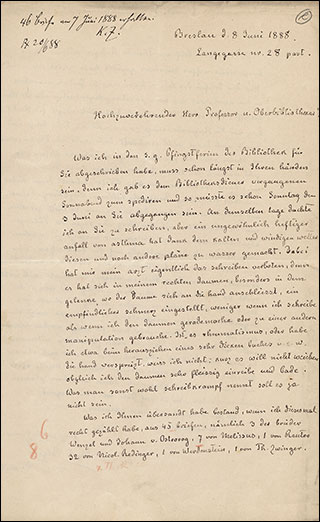 46 Briefe am 7 Juni 1888 erhalten.
K. Z.
Bt 20/6 88
Breslau d. 8 Juni 1888.
Langegasse nr. 28 part.
Hochzuverehrender Herr Professor u. Oberbibliothecar
Was ich in den s. g. Pfingstferien der Bibliothek für
Sie abgeschrieben habe, muss schon längst in Ihren händen
sein. denn ich gab es dem Bibliotheksdiener vergangenen
Sonnabend zum spediren und so müsste es schon Sonntag den
3 Juni an Sie abgegangen sein. An demselben tage dachte
ich an Sie zu schreiben, aber ein ungewöhnlich heftiger
anfall von asthma hat dann dem kalten und windigen wetter
diesen und noch andere pläne zu wasser gemacht. Dabei
hat mir mein arzt eigentlich das schreiben verboten, denn
es hat sich in meinem rechten daumen, besonders in dem
gelenke wo der Daume sich an die hand anschliesst, ein
empfindlicher schmerz eingestellt, weniger wenn ich schreibe
als wenn ich den daumen gerademache oder zu einer andern
manipulation gebrauche. Ist es rhumatismus, oder habe
ich etwa beim herausziehen eines sehr dicken buches
die hand verspreizt, weiss ich nicht; aber es will nicht weichen
obgleich ich den daumen sehr fleissig einreibe und bade.
Was man sonst wohl schreibkrampf nennt soll es ja
nicht sein.
Was ich Ihnen übersandt habe bestand, wenn ich diesesmal
recht gezählt habe, aus 45 briefen, nämlich 3 der brüder
Wenzel und Johann v. Ostrorog, 7 von Melissus, 1 von
32 von Nicol. Redinger, 1 von 1 von Th. Zwinger.
6
8